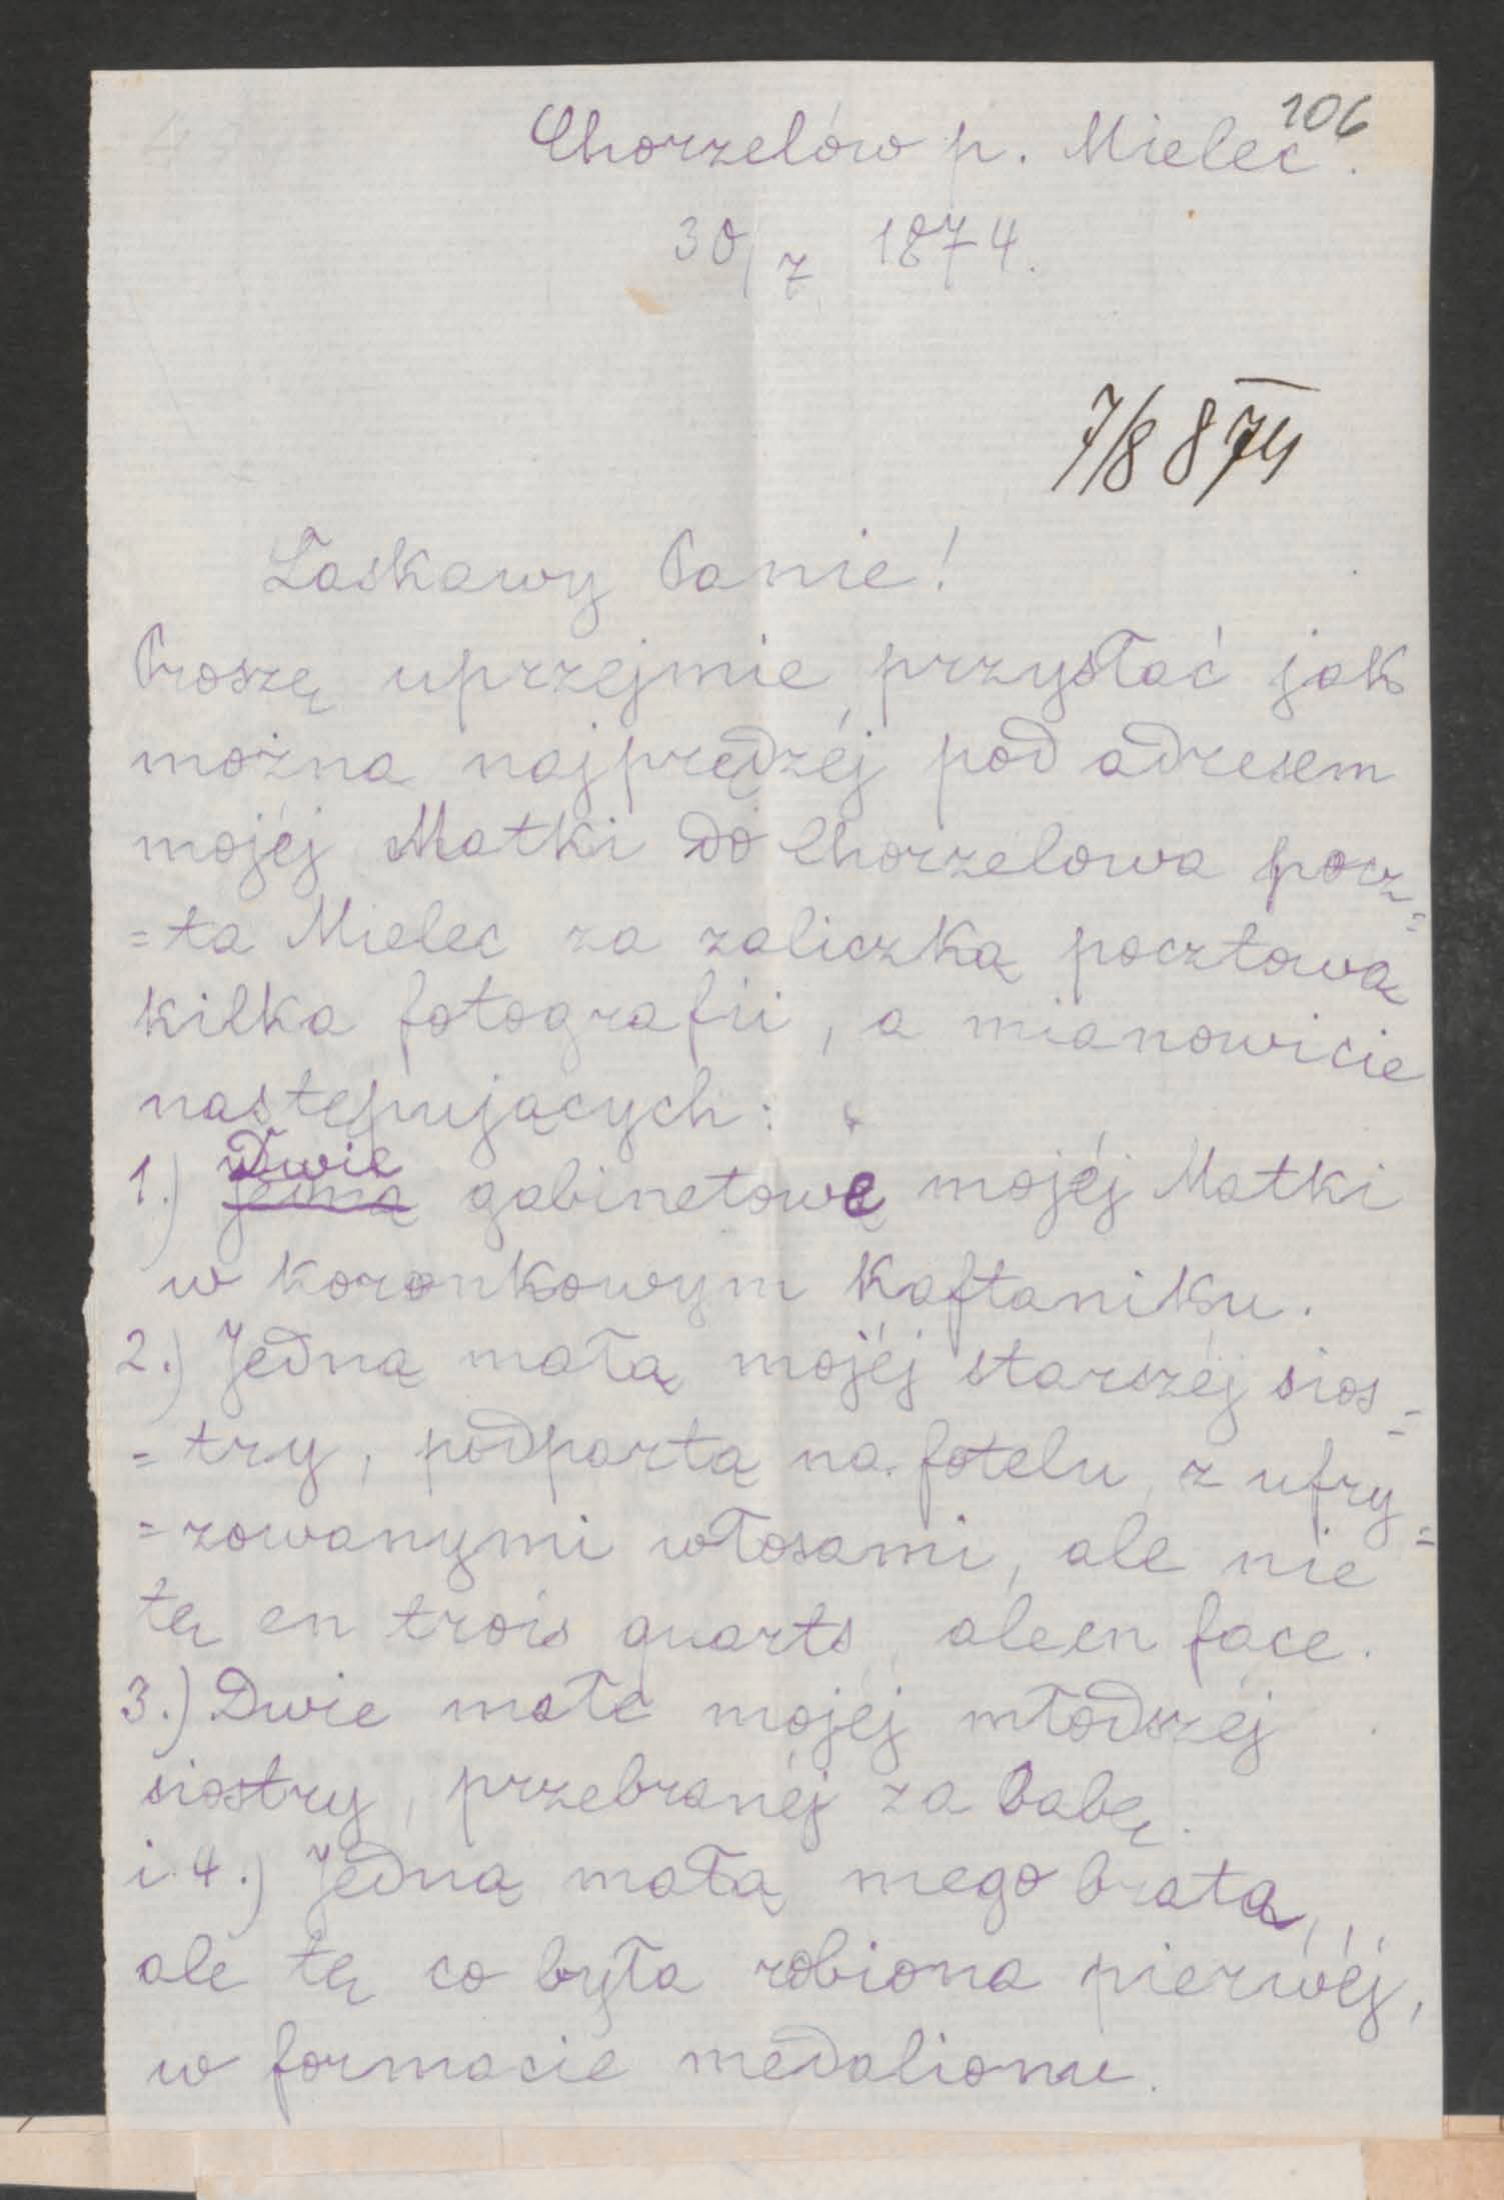 106
Chorzelów p. Mielec.
30/7 1874.
7/8 874
Łaskawy Panie!
Proszę uprzejmie przysłać jak
można najprędzéj pod adresem
mojéj Matki do Chorzelowa pocz=
=ta Mielec za zaliczką pocztową
kilka fotografii, a mianowicie
następujących:
Dwie
1.) Jedną gabinetowe mojéj Matki
w koronkowym kaftaniku.
2.) Jedną małą mojéj starszéj sios=
=try, podpartą na fotelu, z ufry=
=zowanymi włosami, ale nie
tę en trois quarts, ale en face.
3.) Dwie małe mojéj młodszéj
siostry, przebranéj za babę.
i 4.) Jedną małą mego brata,
ale tę co była robiona pierwéj,
w formacie medalionu.